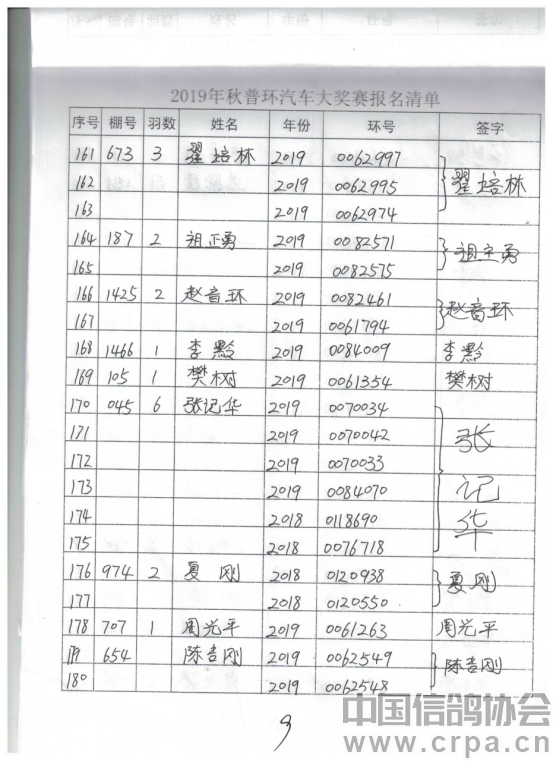 2019年秋普环汽车大奖赛报名清单
序号 棚号 羽数 姓名 年份 环号 签字
161 673 3 翟培林 2019 0062997 翟培林
162 2019 0062995
163 2019 0062974
164 187 2 祖正勇 2019 0082571 祖正勇
165 2019 0082575
166 1425 2 赵音环 2019 0082461 赵音环
167 2019 0061794
168 1466 1 李黔 2019 0084009 李黔
169 105 1 樊树 2019 0061354 樊树
170 045 6 张记华 2019 0070034 张记华
171 2019 0070042
172 2019 0070033
173 2019 0084070
174 2018 0118690
175 2018 0076718
176 974 2 夏刚 2018 0120938 夏刚
177 2018 0120550
178 707 1 周光平 2019 0061263 周光平
179 654 陈吉刚 2019 0062549 陈吉刚
180 2019 0062548
9
中国信鸽协会
www.crpa.cn